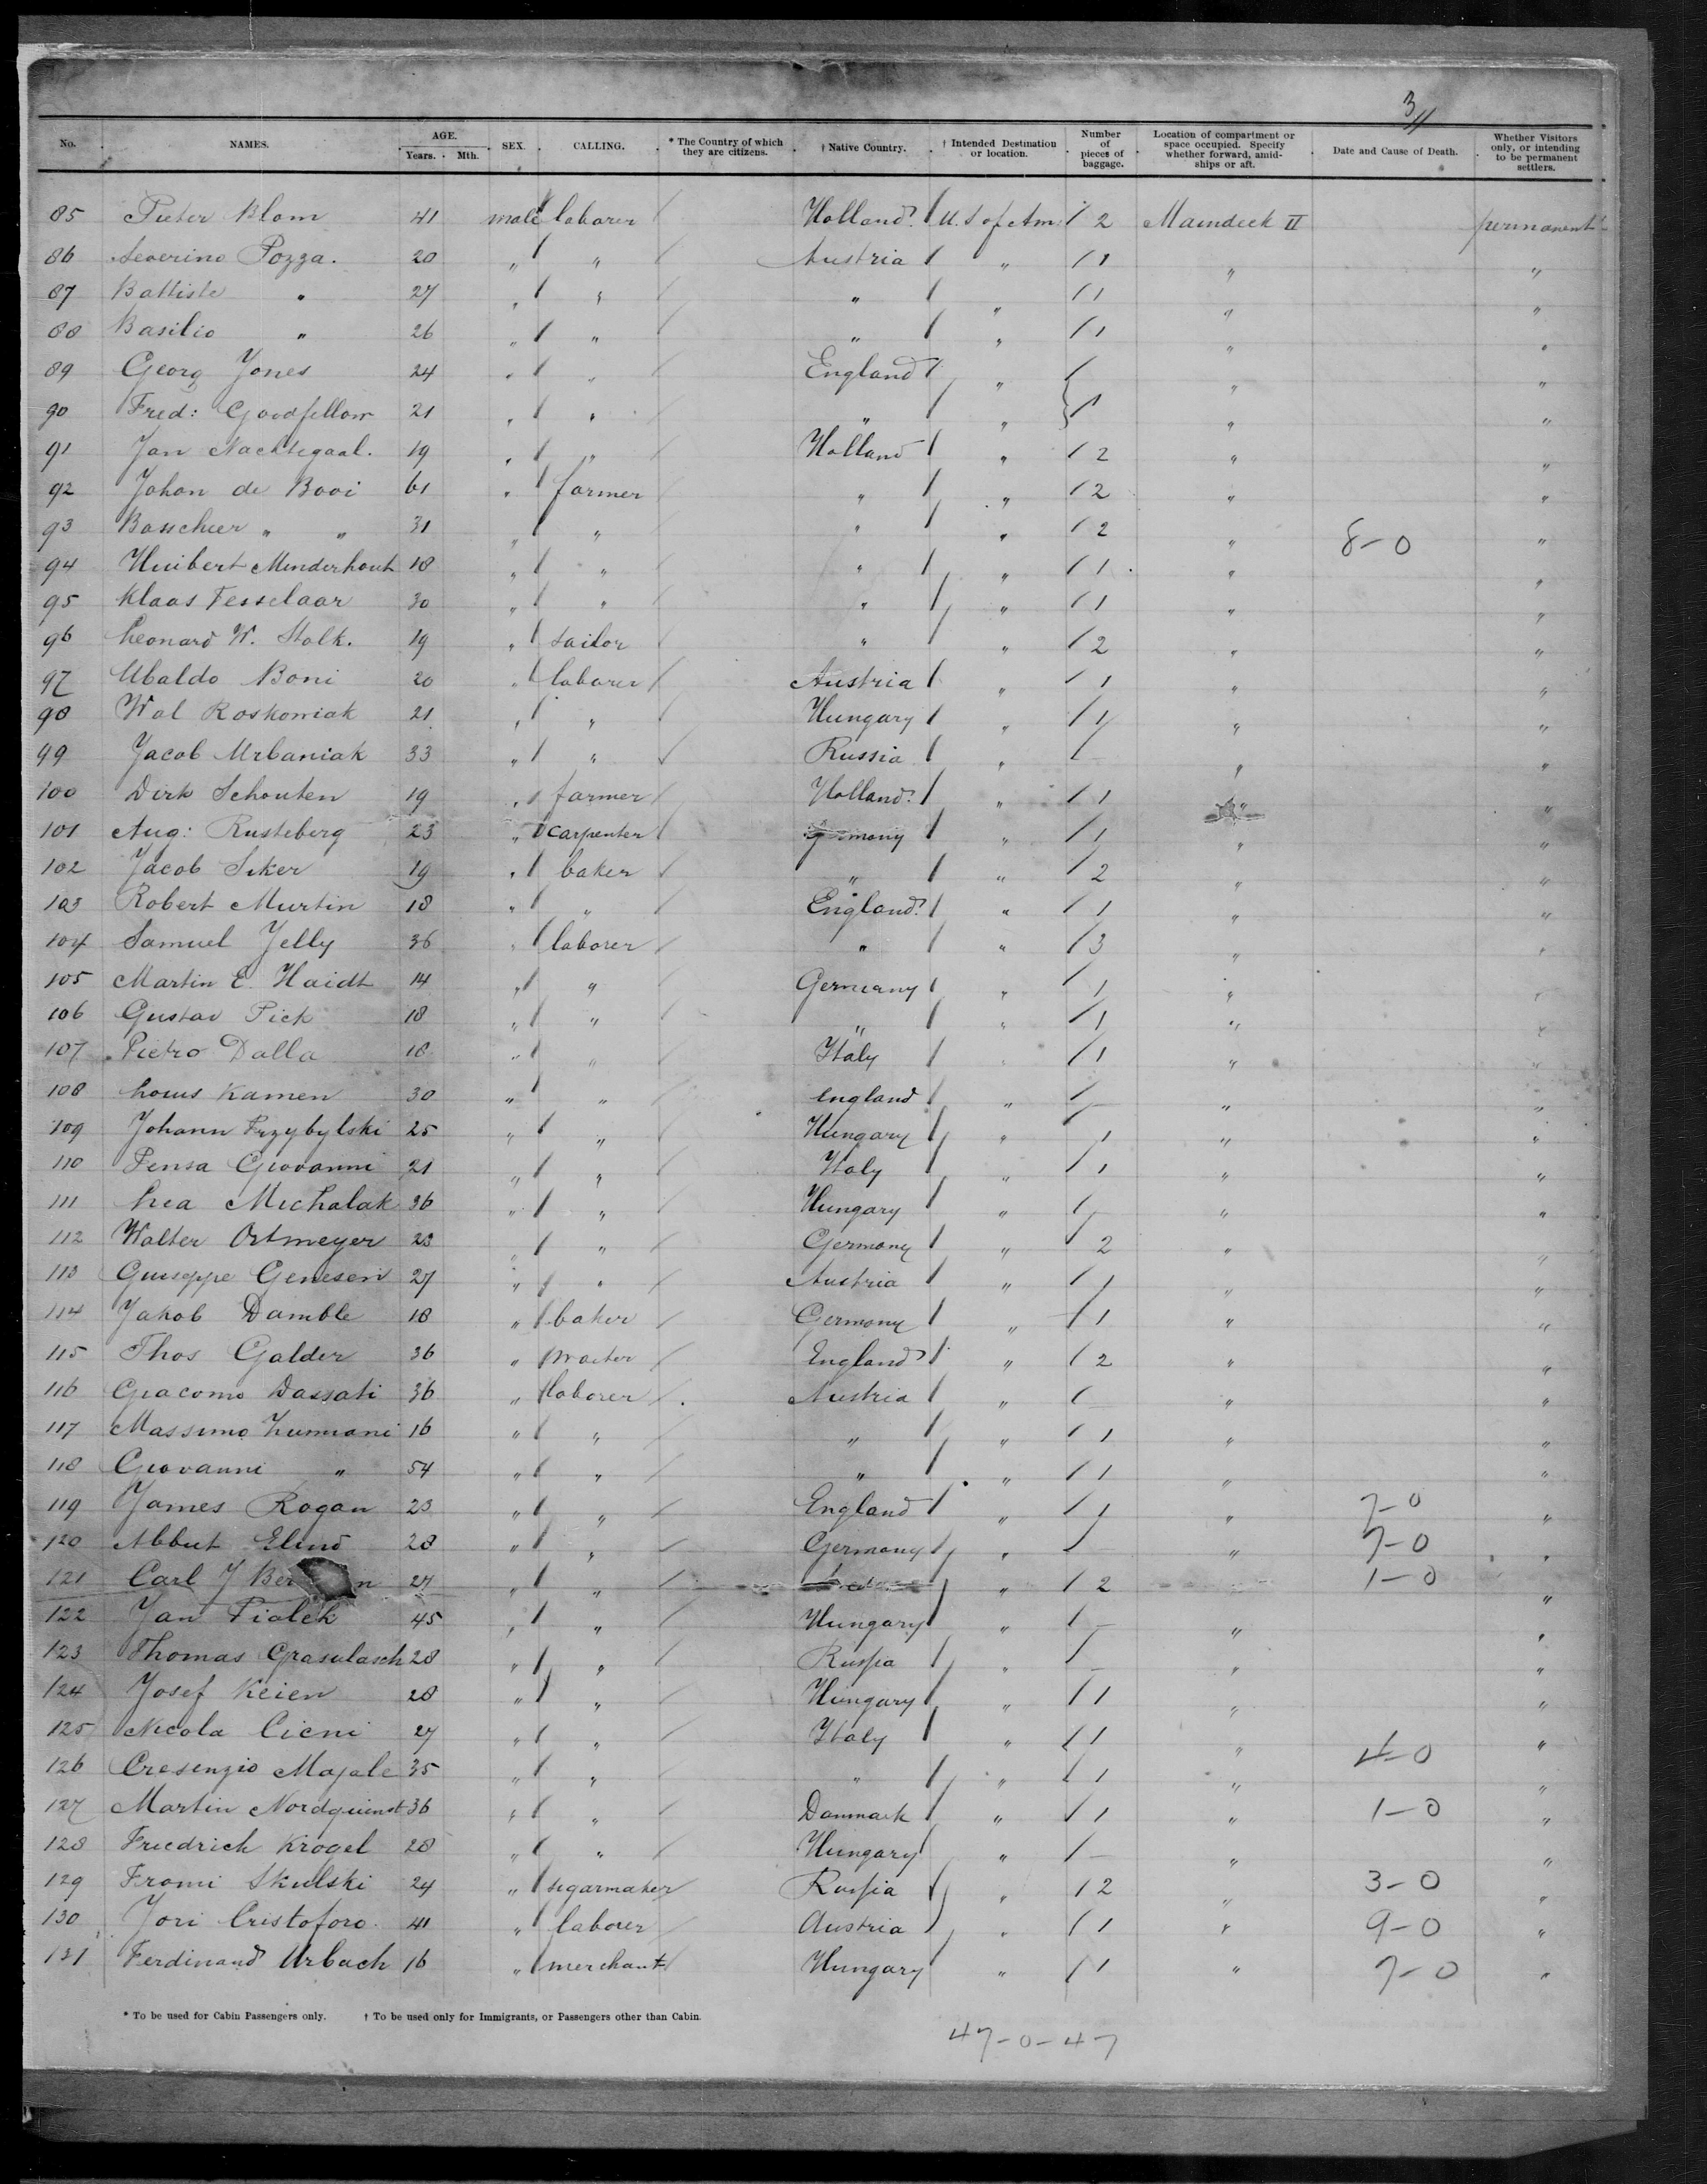 3/11
No. NAMES. AGE. Years. Mth. SEX. CALLING. * The Country of which they are citizens. † Native Country. † Intended Destination or location. Number of pieces of baggage. Location of compartment or space occupied. Specify whether forward, amidships or aft. Date and Cause of Death. Whether Visitors only, or intending to be permanent settlers.
85 Pieter Blom 41 male laborer Holland U. S of Am: 2 Maindeck II permanent
86 Severino Pozza. 20 " " Austria " 1 " "
87 Battiste " 27 " " " " 1 " "
88 Basilio " 26 " " " " 1 " "
89 Georg Jones 24 " " England " " "
90 Fred: Goodfellow 21 " " " " 1 " "
91 Jan Nachtegaal. 19 " " Holland " 2 " "
92 Johan de Booi 61 " farmer " " 2 " "
93 Basscheer " " 31 " " " " 2 " 8-0 "
94 Huibert Minderhout 18 " " " " 1 " "
95 Klaas Fesselaar 30 " " " " 1 " "
96 Leonard W. Stolk. 19 " sailor " " 2 " "
97 Ubaldo Boni 20 " laborer Austria " 1 " "
98 Wal Roskoniak 21 " " Hungary " 1 " "
99 Jacob Urbaniak 33 " " Russia " " "
100 Dirk Schouten 19 " farmer Holland " 1 " "
101 Aug: Rusteberg 23 " carpenter " 1 " "
102 Jacob Seker 19 " baker " " 2 " "
103 Robert Murtin 18 " " England " 1 " "
104 Samuel Jelly 36 " laborer " " 3 " "
105 Martin E. Haidt 14 " " Germany " 1 " "
106 Gustav Pick 18 " " " " 1 " "
107 Pietro Dalla 18 " " Italy " 1 " "
108 Louis Kamen 30 " " England " " "
109 Johann Przybylski 25 " " Hungary " 1 " "
110 Pensa Giovanni 21 " " Italy " 1 " "
111 Lea Michalak 36 " " Hungary " " "
112 Walter Ortmeyer 23 " " Germany " 2 " "
113 Guiseppe Geneseri 27 " " Austria " 1 " "
114 Jakob Damble 18 " baker Germany " 1 " "
115 Thos Galder 36 " waiter England " 2 " "
116 Giacomo Dassati 36 " laborer Austria " " "
117 Massimo 16 " " " " 1 " "
118 Giovanni " 54 " " " " 1 " "
119 James Rogan 23 " " England " 1 " 7-0 "
120 Abbut Elind 28 " " Germany " " 7-0 "
121 Carl J 27 " " " 2 1-0 "
122 Jan Piolek 45 " " Hungary " " "
123 Thomas Grasulasch 28 " " Russia " " "
124 Josef Keien 28 " " Hungary " 1 " "
125 Nicola Cieni 27 " " Italy " 1 " "
126 Cresenzio Majale 35 " " " " 1 " 4-0 "
127 Martin Nordquinst 36 " " Danmark " 1 " 1-0 "
128 Friedrich Krogel 28 " " Hungary " " "
129 Fromi Skulski 24 " segarmaker Russia " 2 " 3-0 "
130 Jori Cristoforo 41 " laborer Austria " 1 " 9-0 "
131 Ferdinand Urbach 16 " merchant Hungary " 1 " 7-0 "
* To be used for Cabin Passengers only. † To be used only for Immigrants, or Passengers other than Cabin.
47-0-47